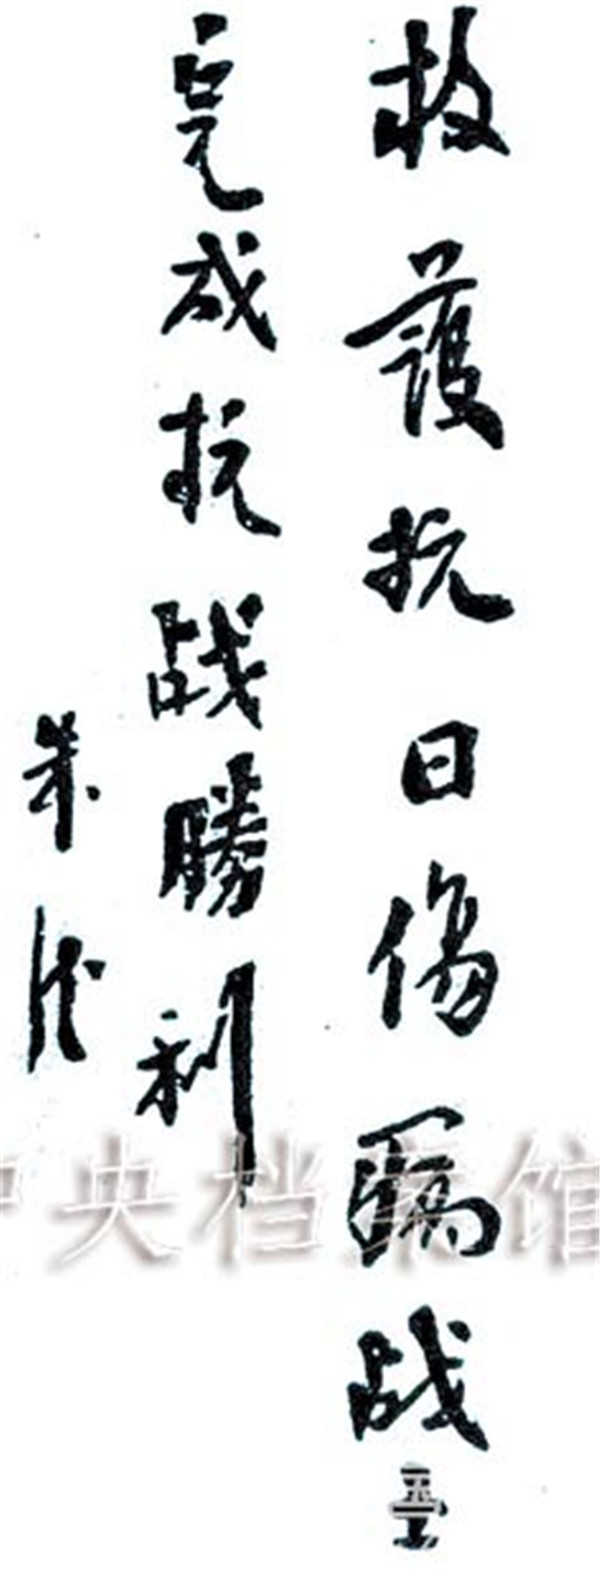 救護抗日傷战
完成抗战勝利
朱德
中央档案馆